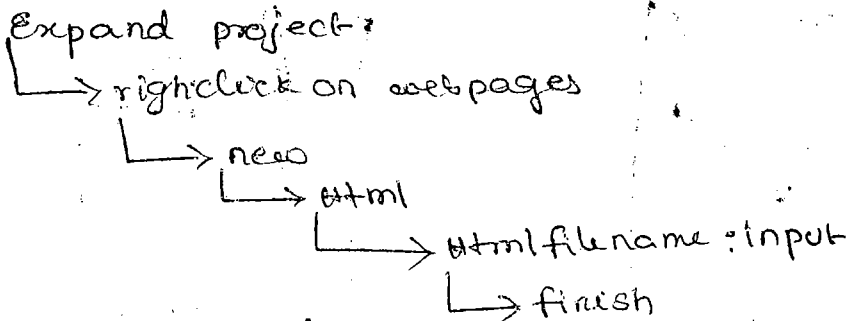 Expand project:
righclick on webpages
new
Html
Html filename : input
finish